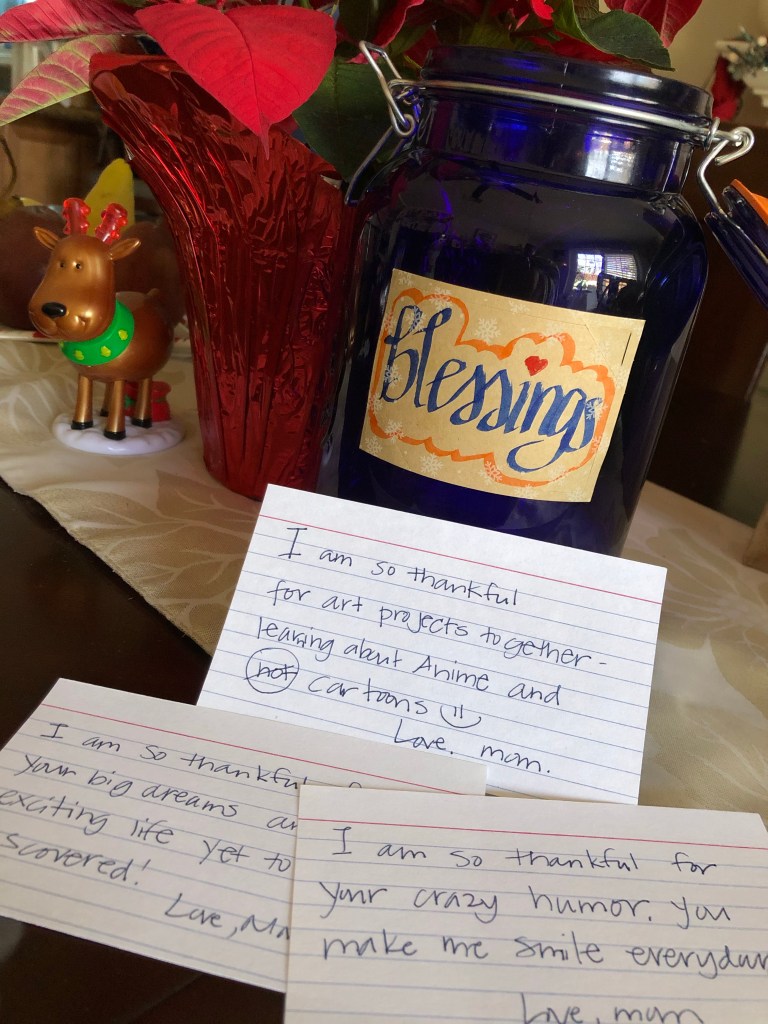 blessings
I am so thankful
for art projects together -
learning about Anime and
not cartoons
Love. mom.
I am so thankful
your big dreams
exciting life yet to
scovered!
Love,
I am so thankful for
your crazy humor. you
make me smile everyday
Love, mom